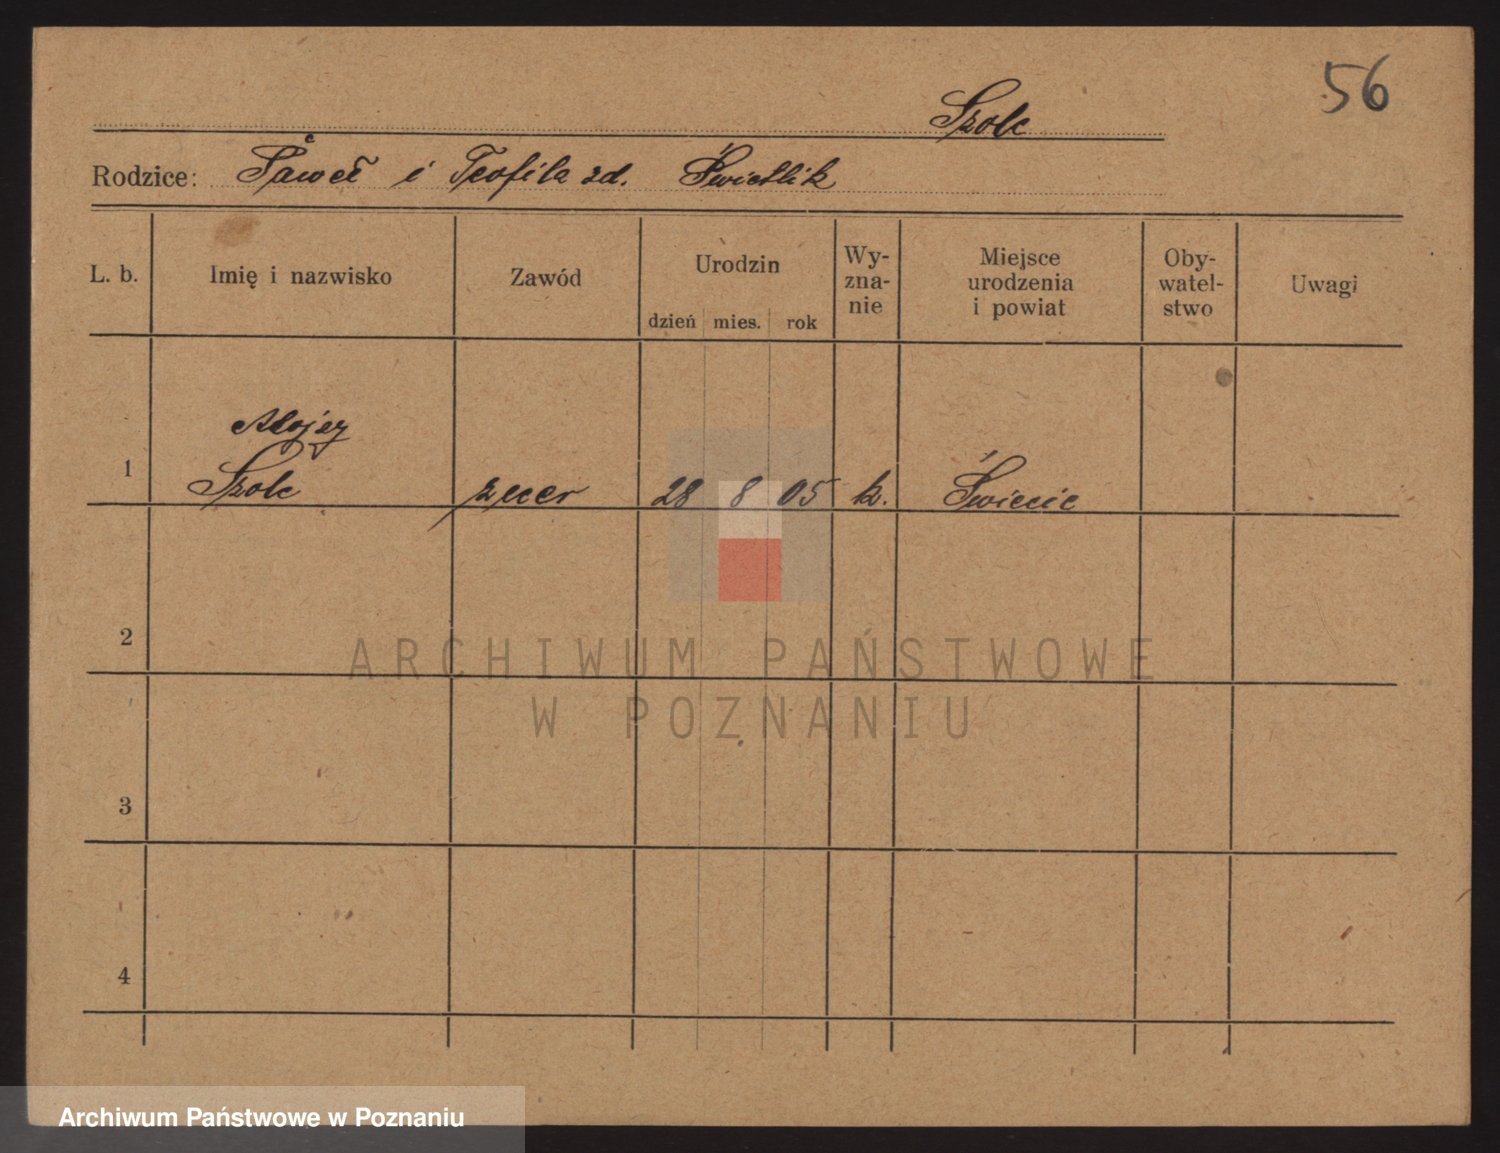 56
Szolc
Rodzice: Paweł i Teofila zd. Świetlik
L. b. Imię i nazwisko Zawód Urodzin dzień mies. rok Wy-zna-nie Miejsce urodzenia i powiat Oby-watel-stwo Uwagi
Alojzy
1 Szolc zecer 28 8 05 k. Świecie
2
3
4
ARCHIWUM PAŃSTWOWE
W POZNANIU
Archiwum Państwowe w Poznaniu